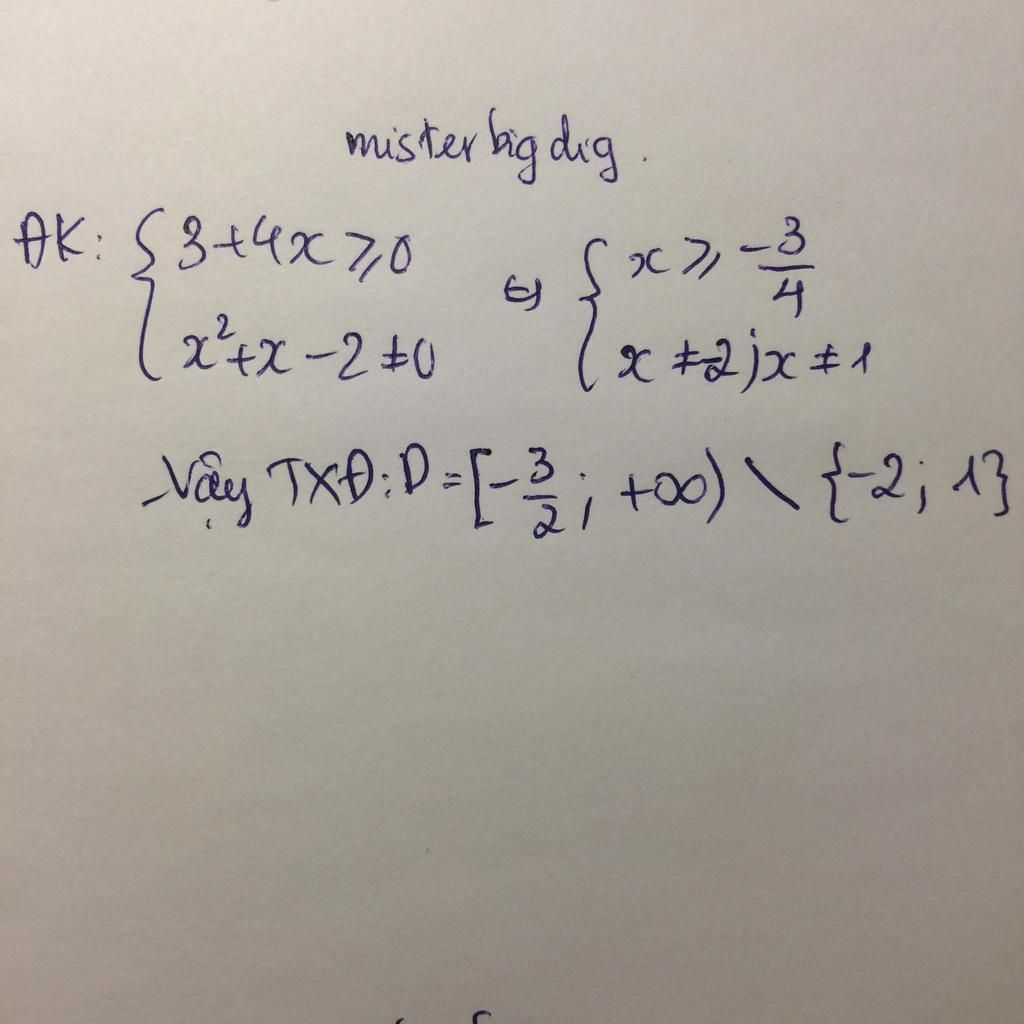 mister big dig.
ĐK: { 3+4x ⩾ 0 ⇔ { x ⩾ -3/4
x²+x-2≠0 x ≠ -2; x ≠ 1
Vậy TXĐ: D = [-3/2; +∞) \ {-2; 1}